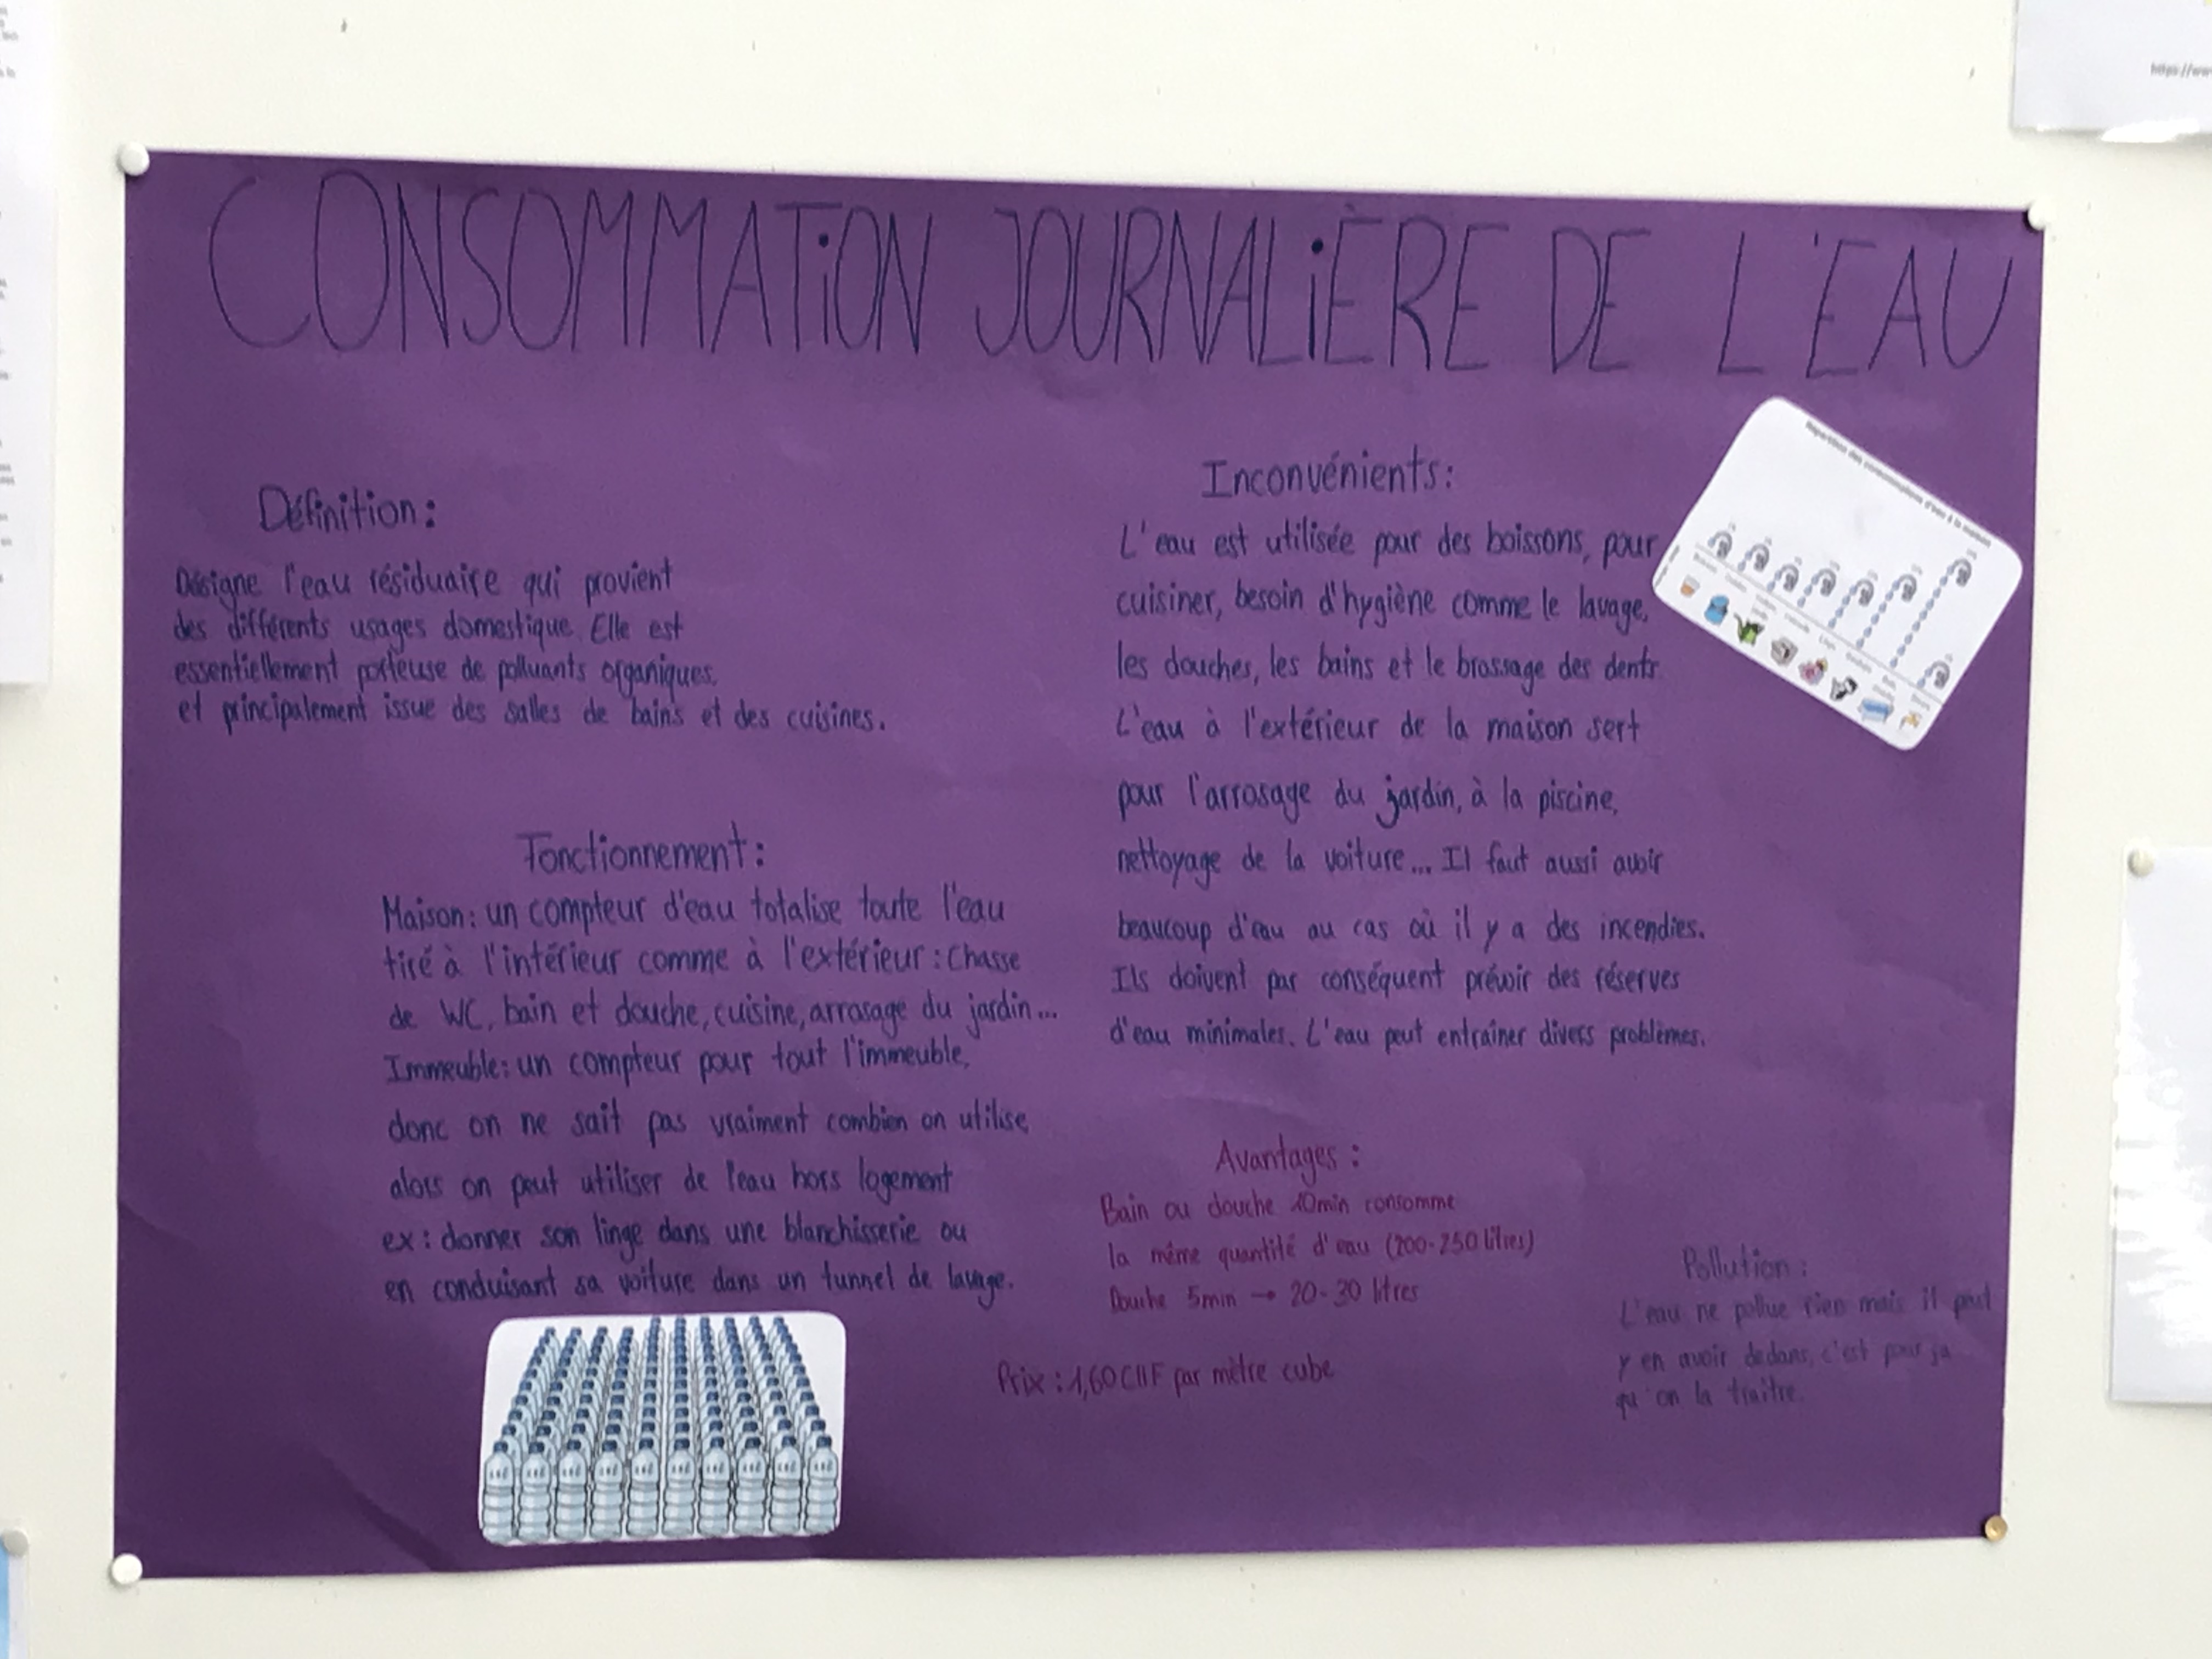 CONSOMMATION JOURNALIÈRE DE L'EAU
Définition :
Désigne l'eau résiduaire qui provient
des différents usages domestique. Elle est
essentiellement porteuse de polluants organiques,
et principalement issue des salles de bains et des cuisines.
Fonctionnement :
Maison : un compteur d'eau totalise toute l'eau
tiré à l'intérieur comme à l'extérieur : Chasse
de WC, bain et douche, cuisine, arrosage du jardin...
Immeuble : un compteur pour tout l'immeuble,
donc on ne sait pas vraiment combien on utilise,
alors on peut utiliser de l'eau hors logement
ex : donner son linge dans une blanchisserie ou
en conduisant sa voiture dans un tunnel de lavage.
Inconvénients :
L'eau est utilisée pour des boissons, pour
cuisiner, besoin d'hygiène comme le lavage,
les douches, les bains et le brossage des dents.
L'eau à l'extérieur de la maison sert
pour l'arrosage du jardin, à la piscine,
nettoyage de la voiture... Il faut aussi avoir
beaucoup d'eau au cas où il y a des incendies.
Ils doivent par conséquent prévoir des réserves
d'eau minimales. L'eau peut entraîner divers problèmes.
Répartition des consommations d'eau à la maison
Avantages :
Bain ou douche 10min consomme
la même quantité d'eau (200-250 litres)
Douche 5min → 20-30 litres
Prix : 1,60 CHF par mètre cube
Pollution :
L'eau ne pollue rien mais il peut
y en avoir dedans, c'est pour ja
qu'on la traître.
https://ww